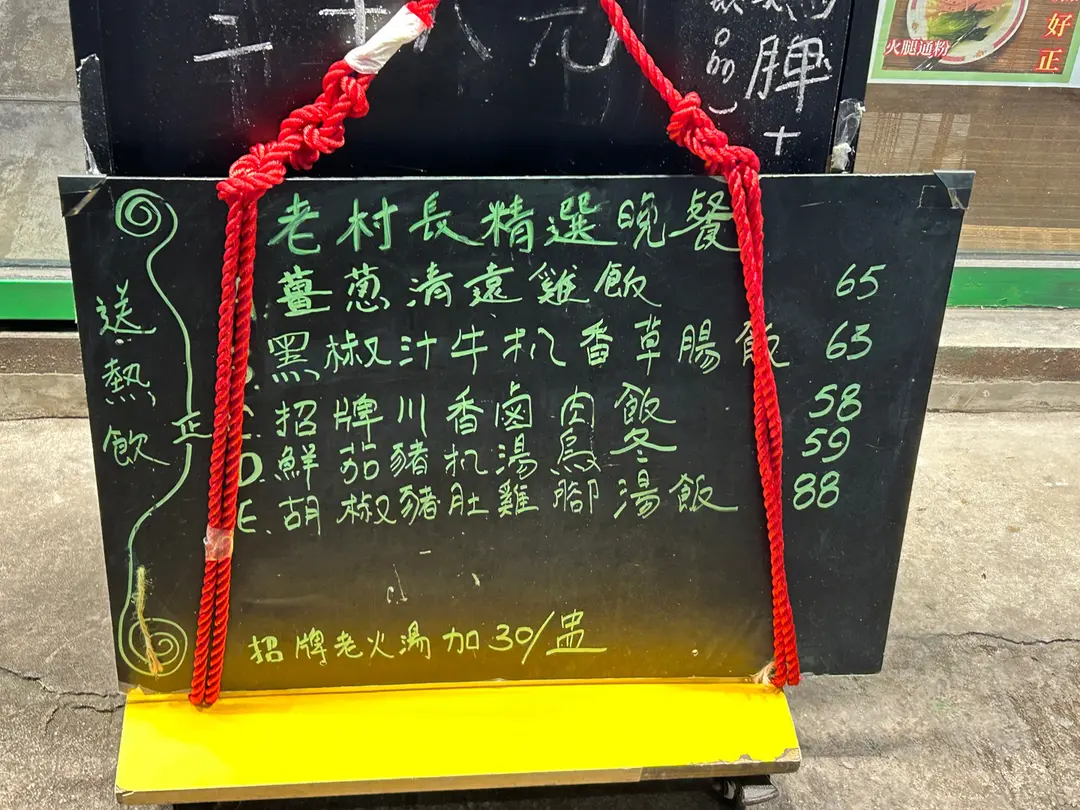 二十八元
品)
脾
+
火腿通粉
好正
老村長精選晚餐
薑葱清遠雞飯 65
黑椒汁牛扒香草腸飯 63
C. 招牌川香鹵肉飯 58
D. 鮮茄豬扒湯烏冬 59
E. 胡椒豬肚雞腳湯飯 88
送熱飲
正
招牌老火湯加30/盅